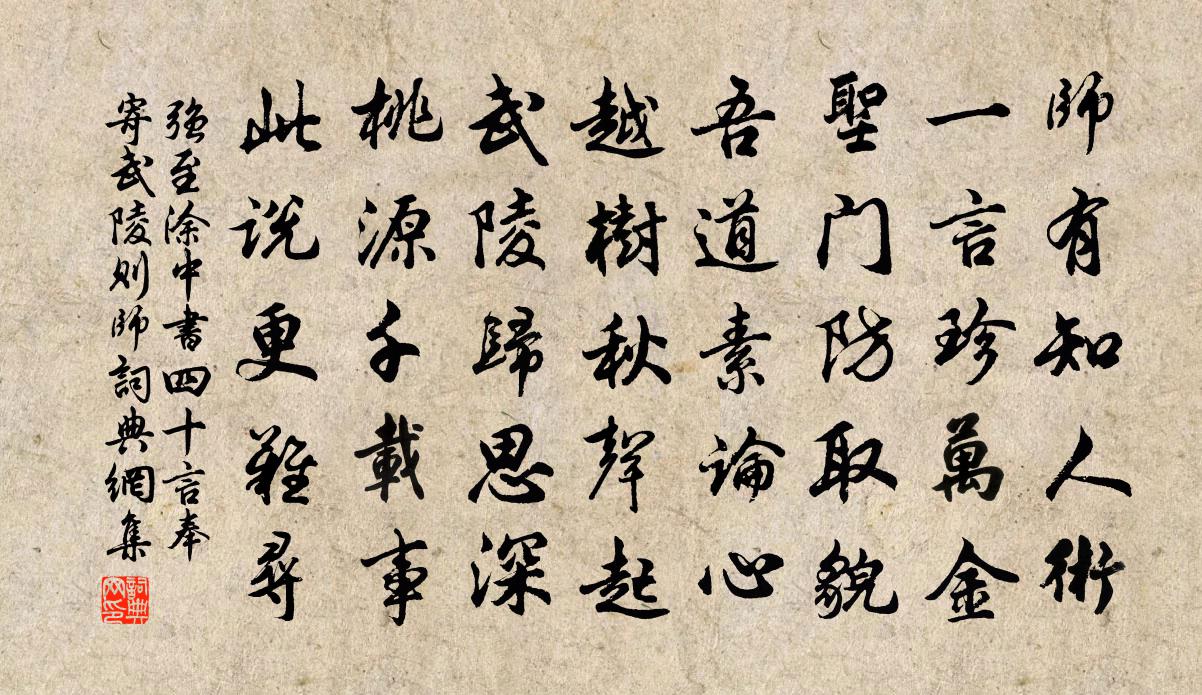 師有知人術
一言珍萬金
聖門防取貌
吾道素論心
越樹秋聲起
武陵歸思深
桃源千載事
此説更難尋
強至涂中書四十言奉
寄武陵則師詞典網集
詞典網印